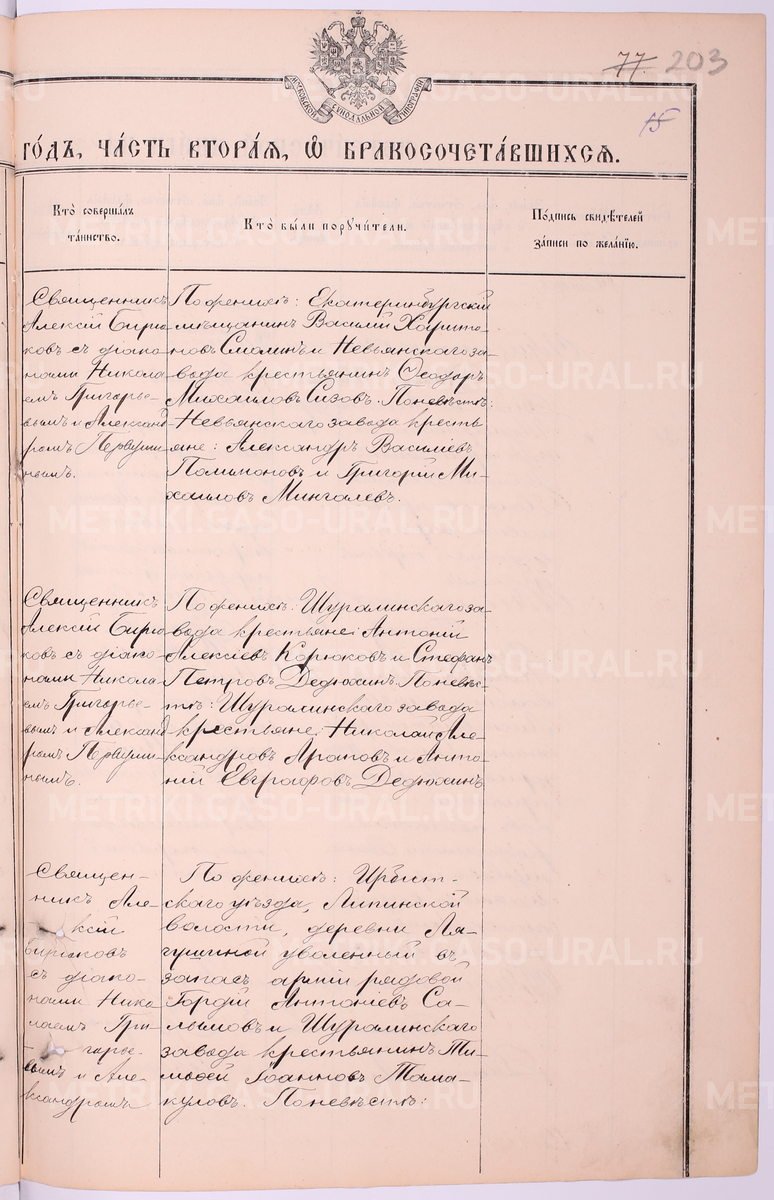 77. 203
15
МОСКОВСКОЙ СѴНОДАЛЬНОЙ ТИПОГРАФІИ
го́дъ, ча́сть втора́ѧ, ѡ҆ бракосочета́вшихсѧ.
Кто̀ соверша́лъ
та́инство.
Кто̀ бы́ли порꙋчи́тели.
По́дпись свидѣ́телей
за́писи по жела́нїю.
Священникъ
Алексій Бирю
ковъ съ діако
нами Никола
емъ Григорье-
вымъ и Александ
ромъ Первуши
нымъ.
По женихѣ: Екатеринбургскій
мѣщанинъ Василій Харито-
новъ Смолинъ и Невьянскаго за-
вода крестьянинъ Ѳеодоръ
Михаиловъ Сизовъ. По невѣстѣ:
Невьянскаго завода кресть
яне: Александръ Василіевъ
и Григорій Ми-
хаиловъ Мингалевъ.
Священникъ
Алексій Бирю
ковъ съ діако-
нами Никола-
емъ Григорье-
вымъ и Александ
ромъ Первуши-
нымъ.
По женихѣ: Шуралинскаго за-
вода крестьяне: Антоній
Алексіевъ Корюковъ и Стефанъ
Петровъ Дедюхинъ. По невѣс-
тѣ: Шуралинскаго завода
крестьяне: Николай Але-
ксандровъ Араповъ и Анто-
ній Евграфовъ Дедюхинъ
Священ-
никъ Але-
ксій
Бирюковъ
съ діако-
нами Нико
лаемъ Гри-
горье-
вымъ и Але-
ксандромъ
По женихѣ: Ирбит-
скаго уѣзда, Липинской
волости, деревни Ля-
гушиной уволенный въ
запасъ арміи рядовой
Гордій Антоніевъ Са-
лымовъ и Шуралинскаго
завода крестьянинъ Ти-
моѳей Іоанновъ Тома-
куловъ. По невѣстѣ:
METRIKI.GASO-URAL.RU